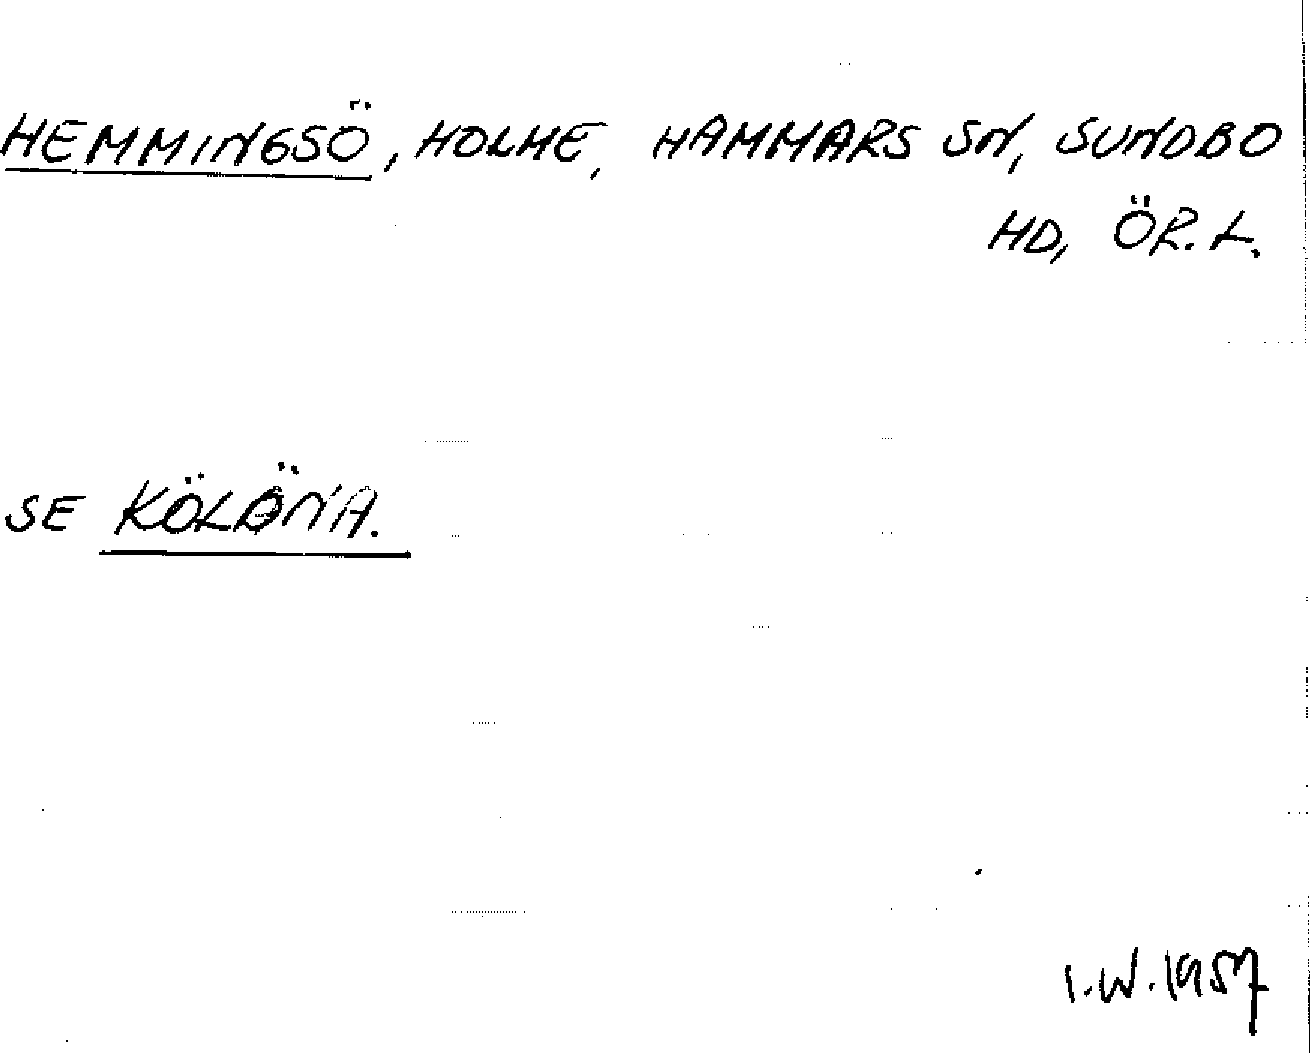 HEMMINGSÖ, HOLME, HAMMARS SN, SUNDBO
HD, ÖR. L.
SE KÖLÖNA.
I.W.1957